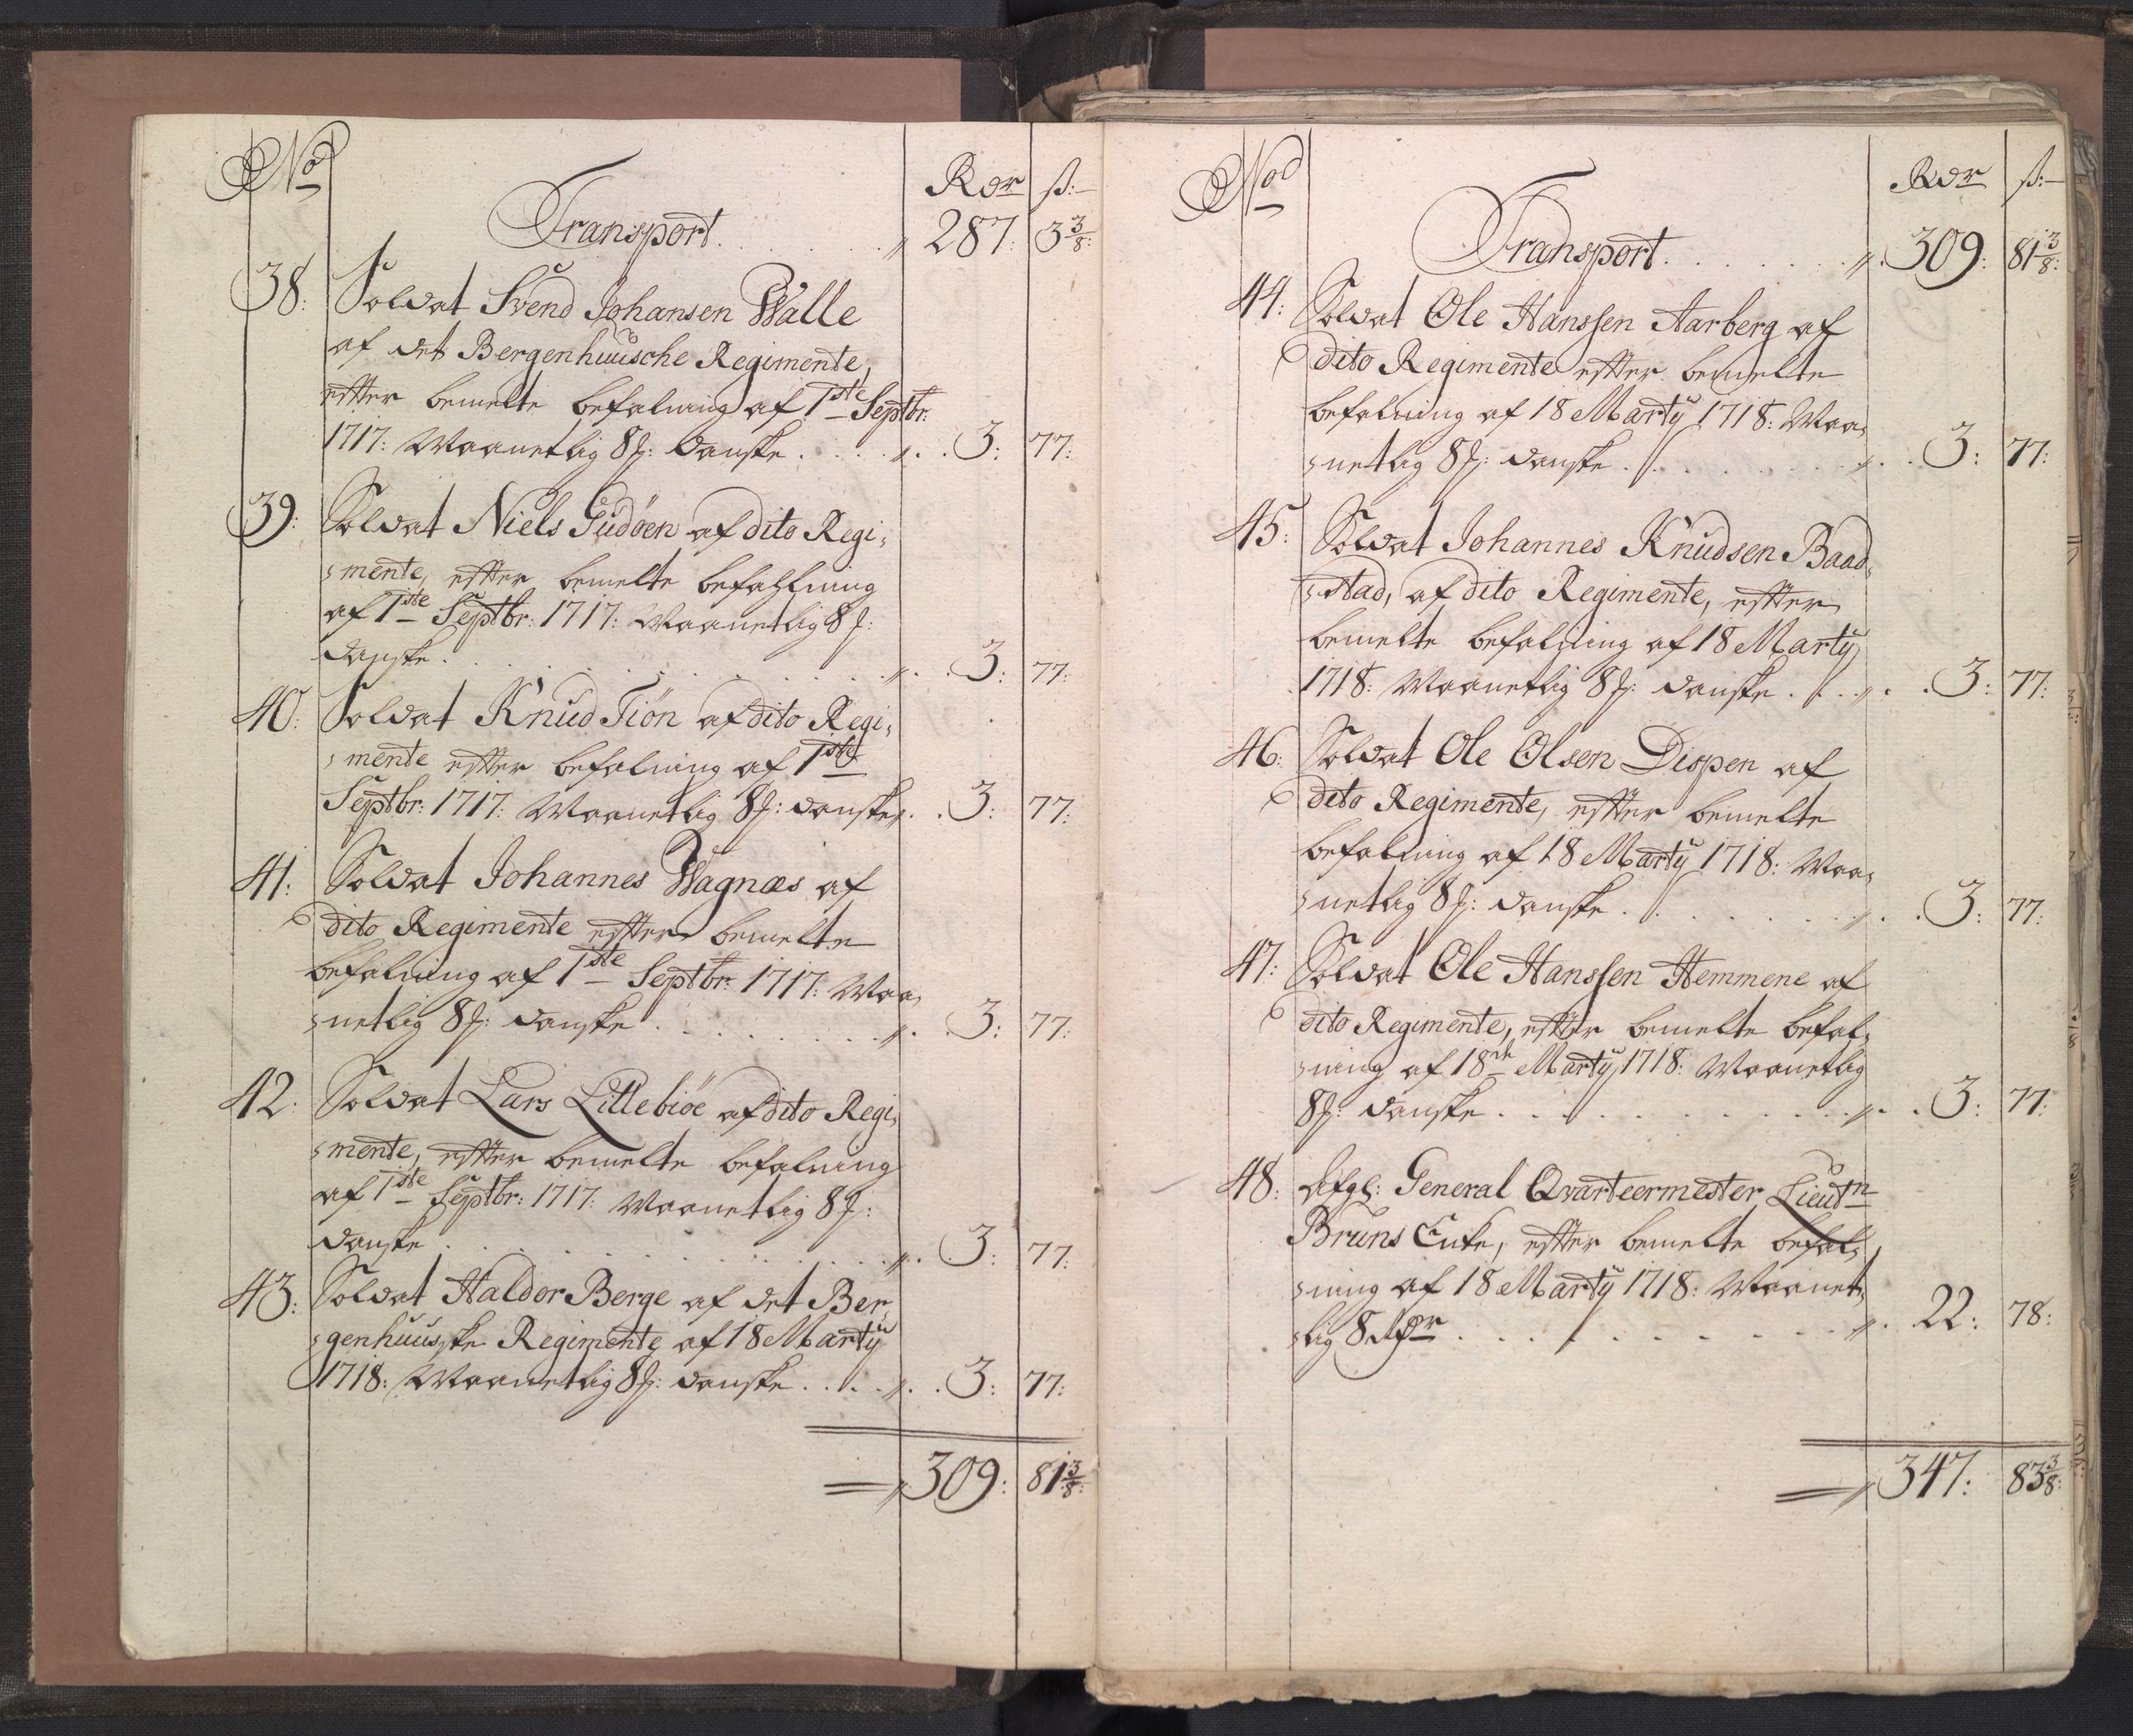 No
Rdr ß:
Transport. . . . . . . „ 287: 3 3/8:
38: Soldat Svend Johansen Walle
af det Bergenhuusche Regimente,
efter bemelte befalning af 1ste Septbr:
1717: Maanetlig 8 ß: danske . . . . „ . . 3: 77:
39: Soldat Niels Gudøen af dito Regi-
mente, efter bemelte befahlning
af 1ste Septbr: 1717: Maanetlig 8 ß:
danske . . . . . . . . . . „ . . 3: 77:
40: Soldat Knud Tiön af dito Regi-
mente efter befalning af 1ste
Septbr: 1717: Maanetlig 8 ß: danske „ . . 3: 77:
41: Soldat Johannes Wagnæs af
dito Regimente efter bemelte
befalning af 1ste Septbr: 1717: Maa-
netlig 8 ß: danske . . . . . . . „ . . 3: 77:
42: Soldat Lars Lillebiöe af dito Regi-
mente, efter bemelte befalning
af 1ste Septbr: 1717: Maanetlig 8 ß:
danske . . . . . . . . . . „ . . 3: 77:
43: Soldat Haldor Berge af det Ber-
genhuusske Regimente af 18 Martÿ
1718: Maanetlig 8 ß: danske . . . . „ . . 3: 77:
= „ 309: 81 3/8:
No
Rdr ß:
Transport. . . . . . . „ . 309: 81 3/8:
44: Soldat Ole Hanssen Aarberg af
dito Regimente efter bemelte
befalning af 18 Martÿ 1718: Maa-
netlig 8 ß: danske . . . . . . . „ . . 3: 77:
45: Soldat Johannes Knudsen Baad-
stad, af dito Regimente, efter
bemelte befalning af 18 Martÿ
1718: Maanetlig 8 ß: danske . . . „ . . 3: 77:
46: Soldat Ole Olsen Dispen af
dito Regimente, efter bemelte
befalning af 18 Martÿ 1718: Maa-
netlig 8 ß: danske . . . . . . . „ . . 3: 77:
47: Soldat Ole Hanssen Hemmene af
dito Regimente, efter bemelte befal-
ning af 18de Martÿ 1718: Maanetlig
8 ß: danske . . . . . . . . . . „ . . 3: 77:
48: General Qvarteermester Lieutn
Bruns Enke, efter bemelte befal-
ning af 18 Martÿ 1718: Maanet-
lig 8 . . . . . . . . . „ . 22: 78:
= „ 347: 83 3/8: